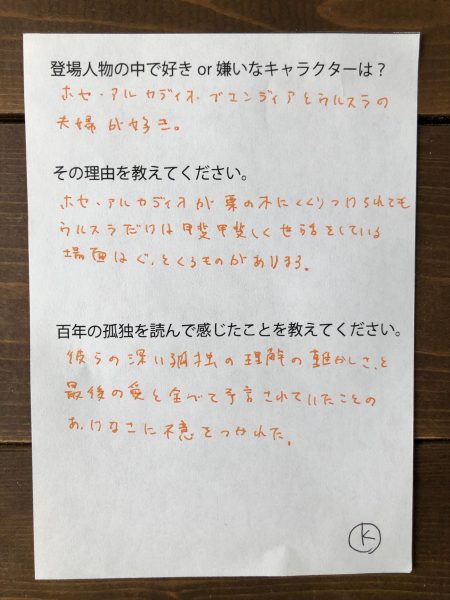 登場人物の中で好き or 嫌いなキャラクターは？
ホセ・アルカディオ・ブエンディアとウルスラの
夫婦が好き。
その理由を教えてください。
ホセ・アルカディオが栗の木にくくりつけられても
ウルスラだけは甲斐甲斐しく世話をしている
場面はぐっとくるものがあります。
百年の孤独を読んで感じたことを教えてください。
彼らの深い孤独の理解の難かしさと
最後の愛と全べて予言されていたことの
あっけなさに不意をつかれた。
K